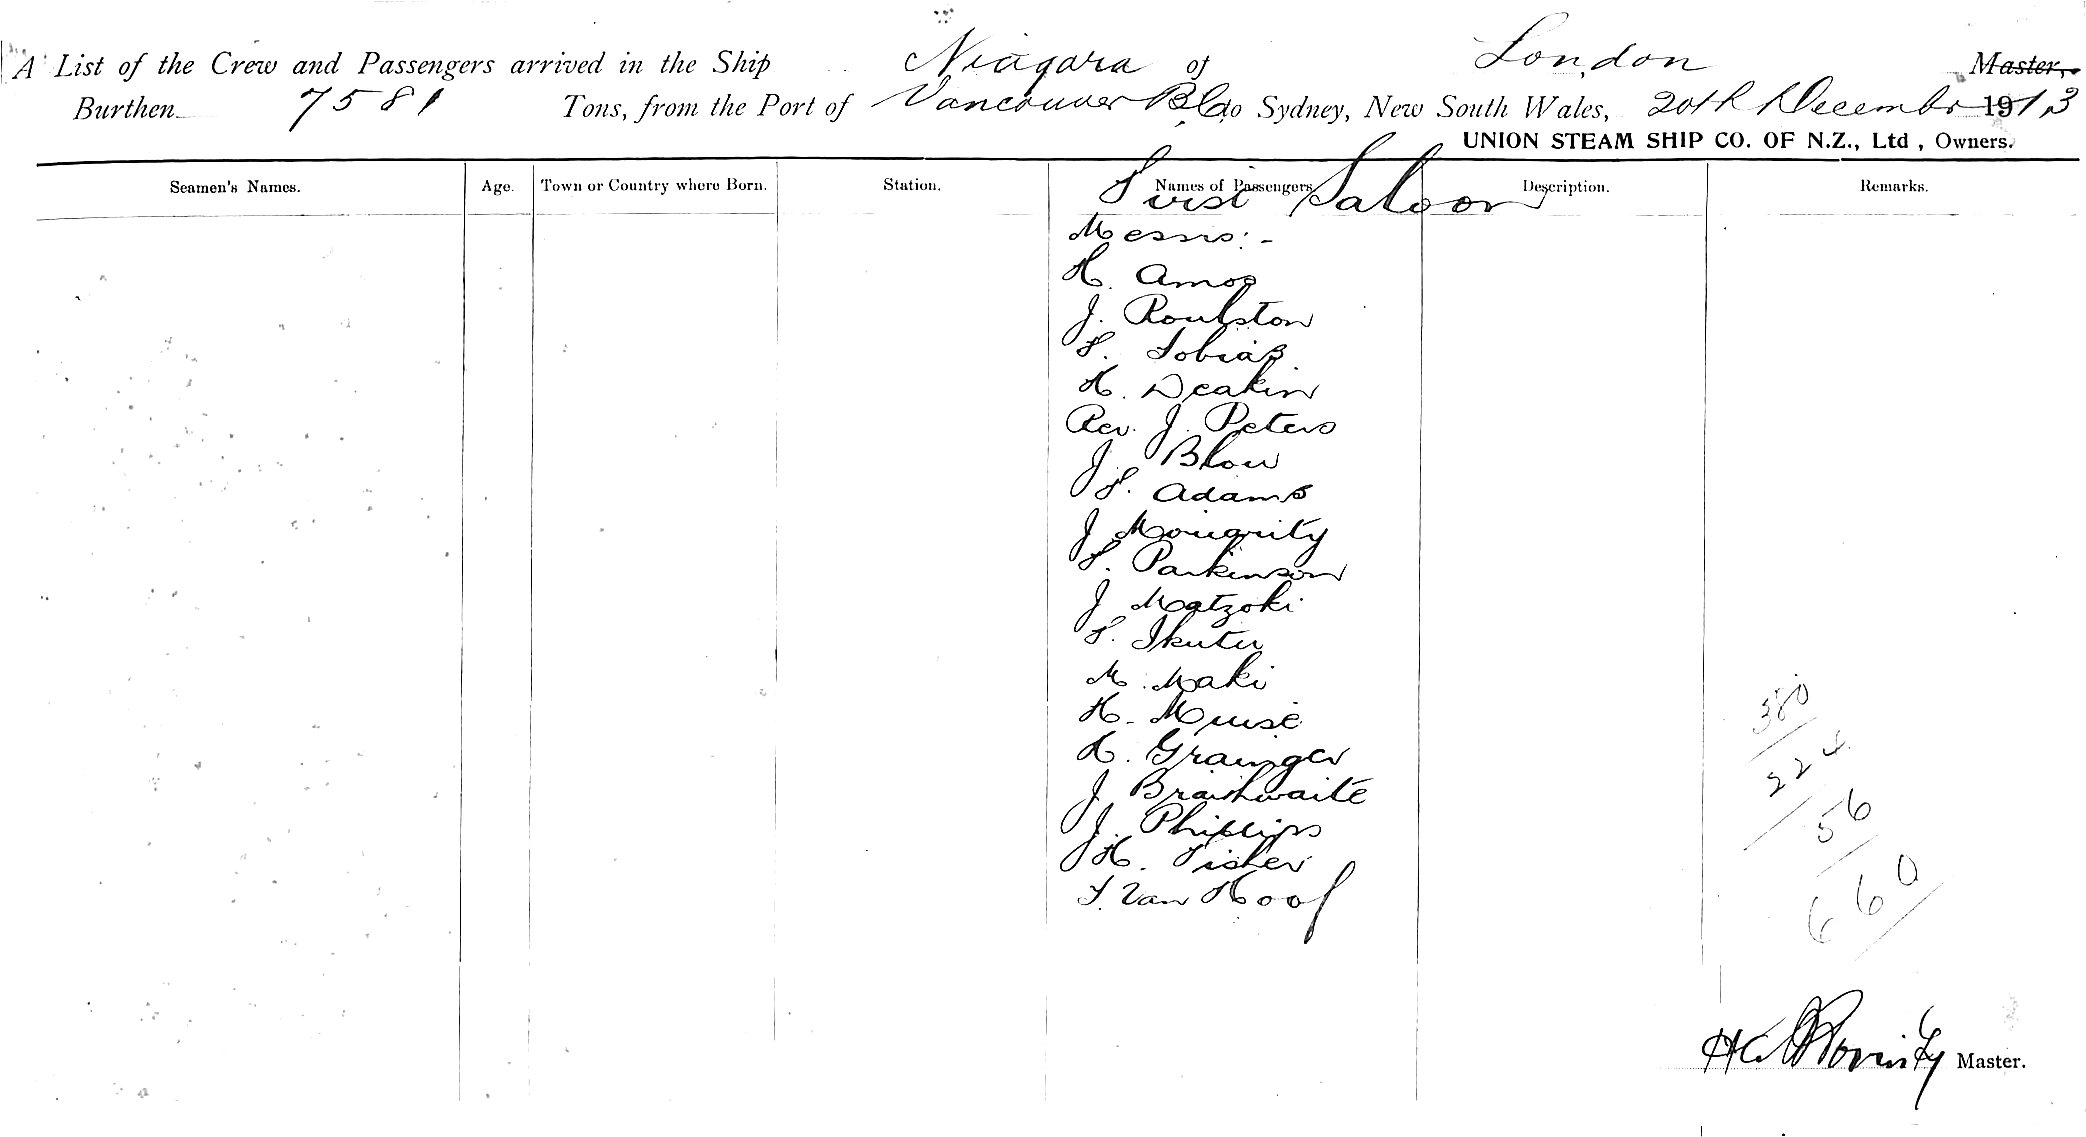 A List of the Crew and Passengers arrived in the Ship Niagara of London Master,
Burthen 7581 Tons, from the Port of Vancouver B.C. to Sydney, New South Wales, 20th Decembr 1913
UNION STEAM SHIP CO. OF N.Z., Ltd., Owners.
Seamen's Names. Age. Town or Country where Born. Station. Names of Passengers Description. Remarks.
First Saloon
Messrs:-
H. Amos
J. Roulston
S. Tobias
H. Deakin
Rev. J. Peters
J. Blow
S. Adams
J Moriarity
S. Parkinson
J Matzoki
S. Ikuta
M. Maki
H. Muise
H. Grainger
J Braithwaite
J. Phillips
H. Fisher
J. Van Hoof
380
224
56
660
Master.